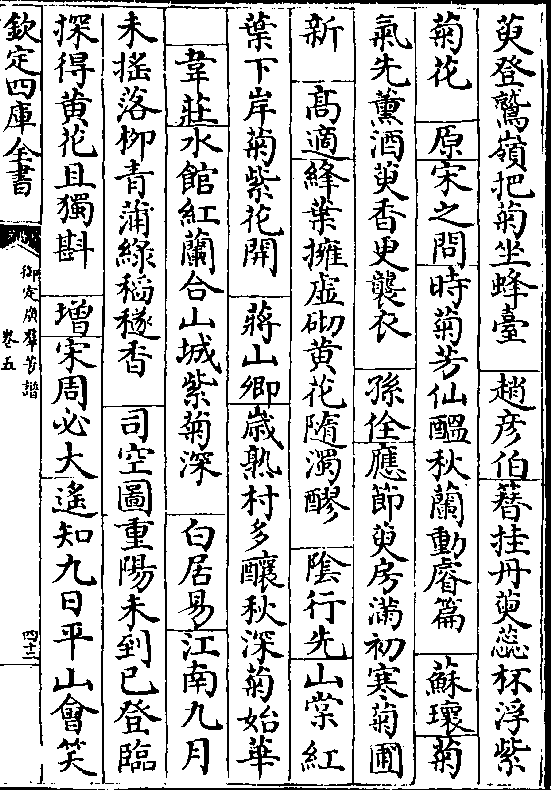 萸登鷲嶺把菊坐蜂臺　趙彦伯簪挂丹萸蕊杯浮紫
菊花　原宋之問時菊芳仙醖秋蘭動睿篇　蘇瓌菊
氣先薰酒萸香更襲衣　孫佺應節萸房滿初寒菊圃
新　髙適絳葉擁虛砌黄花隨濁醪　隂行先山棠紅
葉下岸菊紫花開　蔣山卿歲熟村多釀秋深菊始華
韋莊水館紅蘭合山城紫菊深　白居易江南九月
未摇落柳青蒲緑稻穟香　司空圖重陽未到已登臨
探得黄花且獨斟　増宋周必大遙知九日平山會笑
欽定四庫全書
御定廣羣芳譜
卷五
四十二